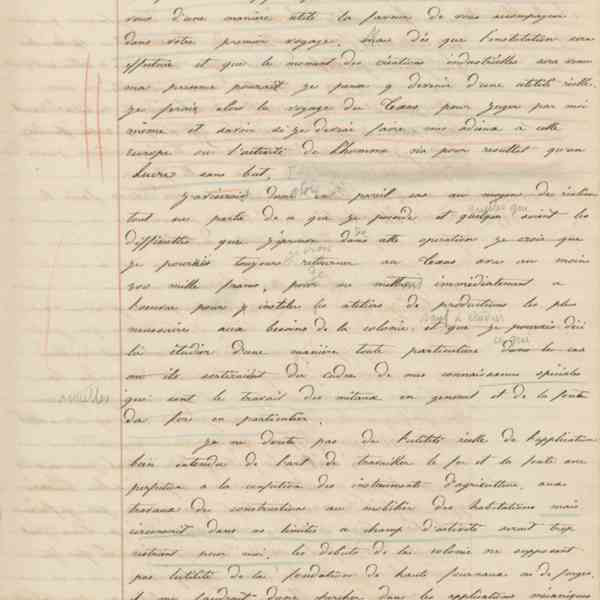 vous d'une manière utile la faveur de vous accompagner
dans votre premier voyage. Mais dès que l'institution sera
effective et que le moment des créations industrielles sera venu
ma présence pourrait je pense y devenir d'une utilité réelle.
je ferais alors le voyage du Texas pour juger par moi
même et savoir si je devrai faire mes adieux à cette
Europe ou l'activité de l'homme n'a pour résultat qu'un
lucre sans but.
J'aviserais dans pareil cas au moyen de
tout ou partie de ce que je possède et quelques soient les
quelles que
difficultés que j'éprouve dans cette opération je crois que
je pourrais toujours retourner au Texas avec au moins
mille francs, pour me mettre immédiatement a
l'oeuvre pour y installer les ateliers de productions les plus
nécessaires aux besoins de la colonie, et que je pourrais déjà
là étudier d'une manière toute particulière dans le cas
ou ils sortiraient du cadre de mes connaissances spéciales
qui sont le travail des métaux en général et de la fonte
du fer en particulier.
Je ne doute pas de l'utilité réelle de l'application
bien entendue de l'art de travailler le fer et la fonte avec
perfection a la confection des instruments d'agriculture, aux
travaux de constructions au mobilier des habitations mais
circonscrit dans ces limites ce champ d'activité serait trop
restreint pour moi. les débuts de la colonie ne supposent
pas l'utilité de la fondation de hauts fourneaux ni de forges,
il me faudrait donc chercher dans les applications mécaniques